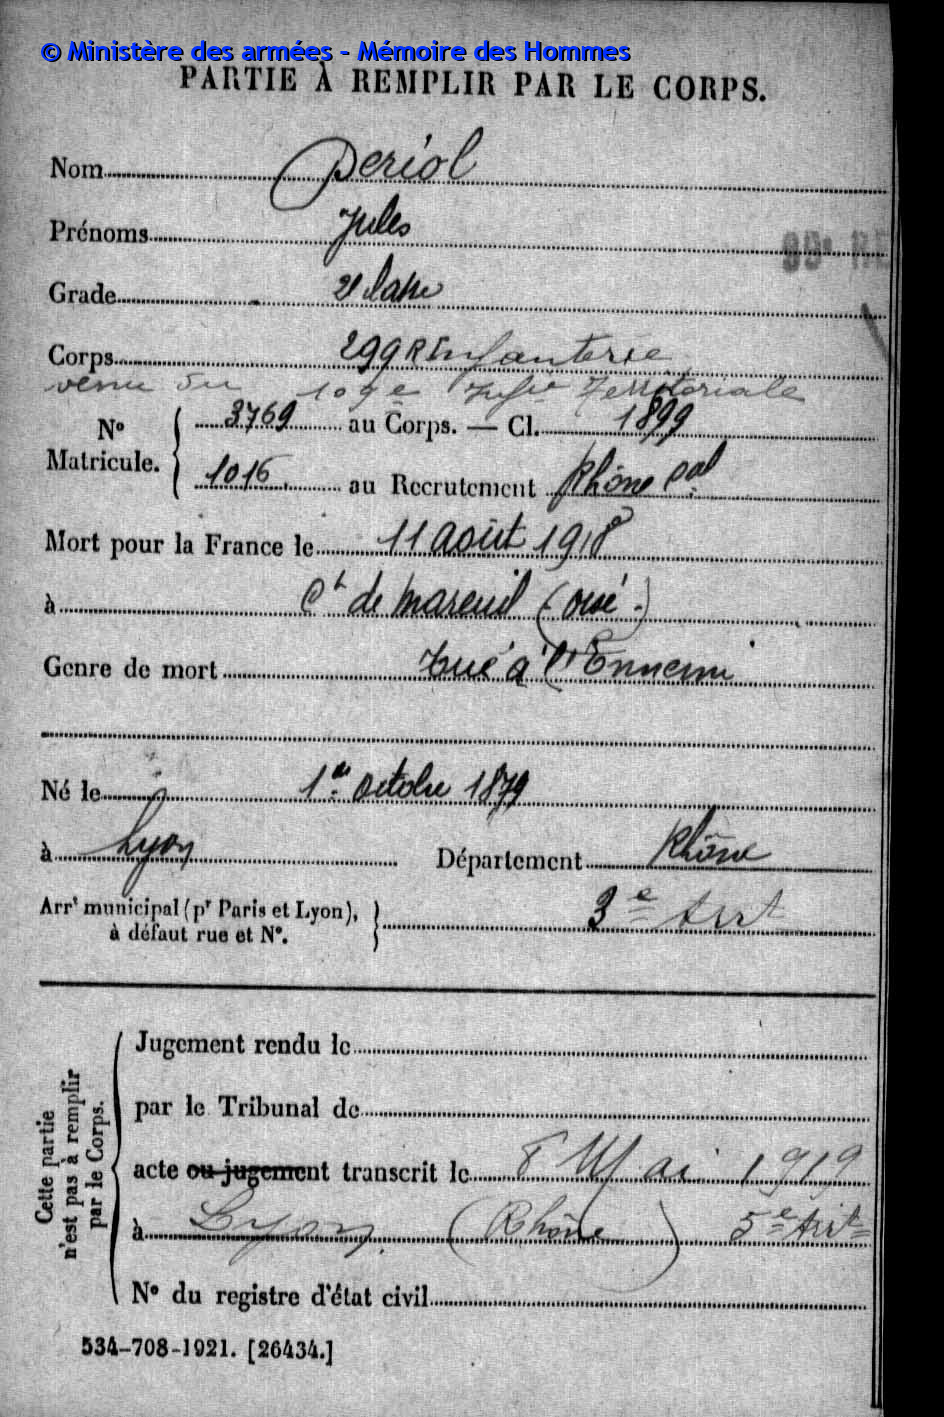 © Ministère des armées - Mémoire des Hommes
PARTIE À REMPLIR PAR LE CORPS.
Nom Periol
Prénoms Jules
99e R
Grade 2e classe
Corps 299 R Infanterie
venu du 109e Infie Territoriale
No Matricule. 3769 au Corps. — Cl. 1899
1016 au Recrutement Rhône cal
Mort pour la France le 11 août 1918
à Ct de Mareuil (Oise)
Genre de mort Tué à l'Ennemi
Né le 1er octobre 1879
à Lyon Département Rhône
Arrt municipal (pr Paris et Lyon), à défaut rue et No. 3e Arrt
Cette partie n'est pas à remplir par le Corps.
Jugement rendu le
par le Tribunal de
acte ou jugement transcrit le 8 Mai 1919
à Lyon (Rhône) 5e Arrt
No du registre d'état civil
534-708-1921. [26434.]